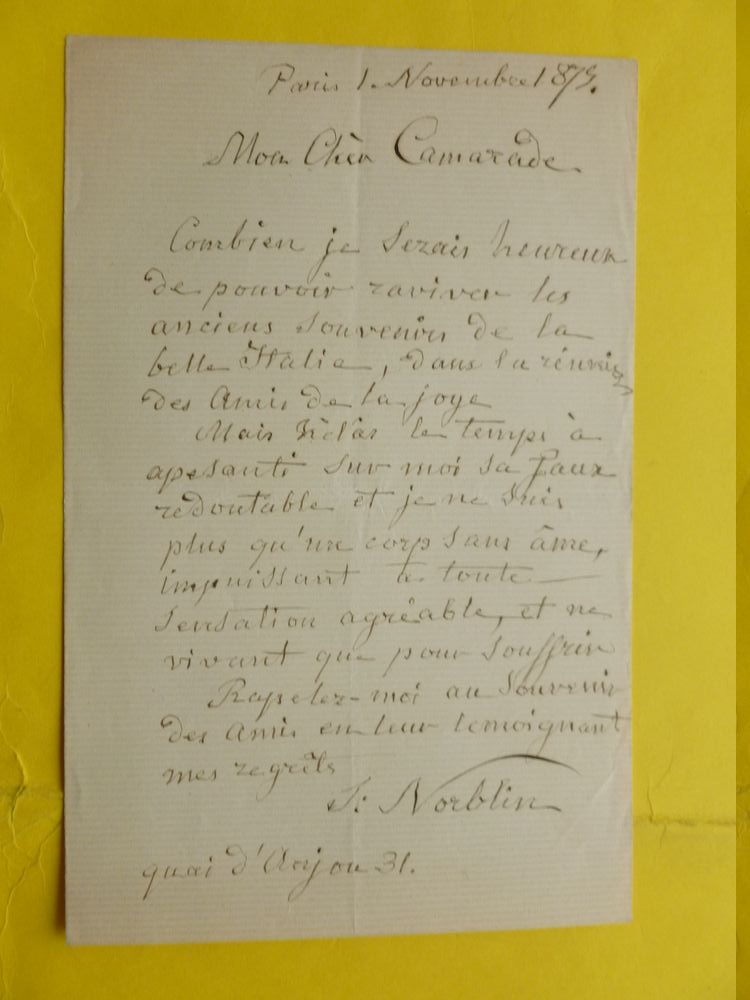 Paris 1. Novembre 1875.
Mon Chèr Camarade
Combien je Serais heureux
de pouvoir raviver les
anciens Souvenirs de la
belle Italie, dans la réunion
des Amis de la joye
Mais hèlas le temps à
apesanti sur moi sa faux
redoutable et je ne suis
plus qu'une corp sans âme,
impuissant à toute
Sensation agréable, et ne
vivant que pour Souffrir
Rapelez-moi au Souvenir
des Amis en leur temoignant
mes regrèts
S: Norblin
quai d'Anjou 31.